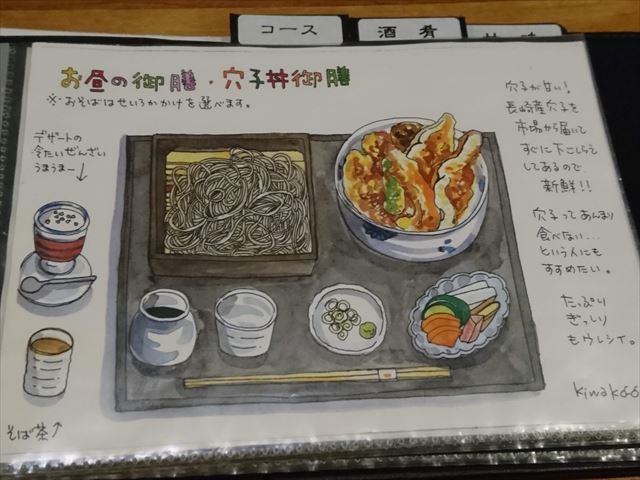 コース
酒肴
お昼の御膳・穴子丼御膳
※・おそばはせいろかかけを選べます。
デザートの
冷たいぜんざい
うまうまー↓
穴子が甘い!
長崎産穴子を
市場から届いて
すぐに下こしらえ
してあるので、
新鮮!!
穴子ってあんまり
食べない…
という人にも
すすめたい。
たっぷり
ぎっしり
もウレシイ。
そば茶↑